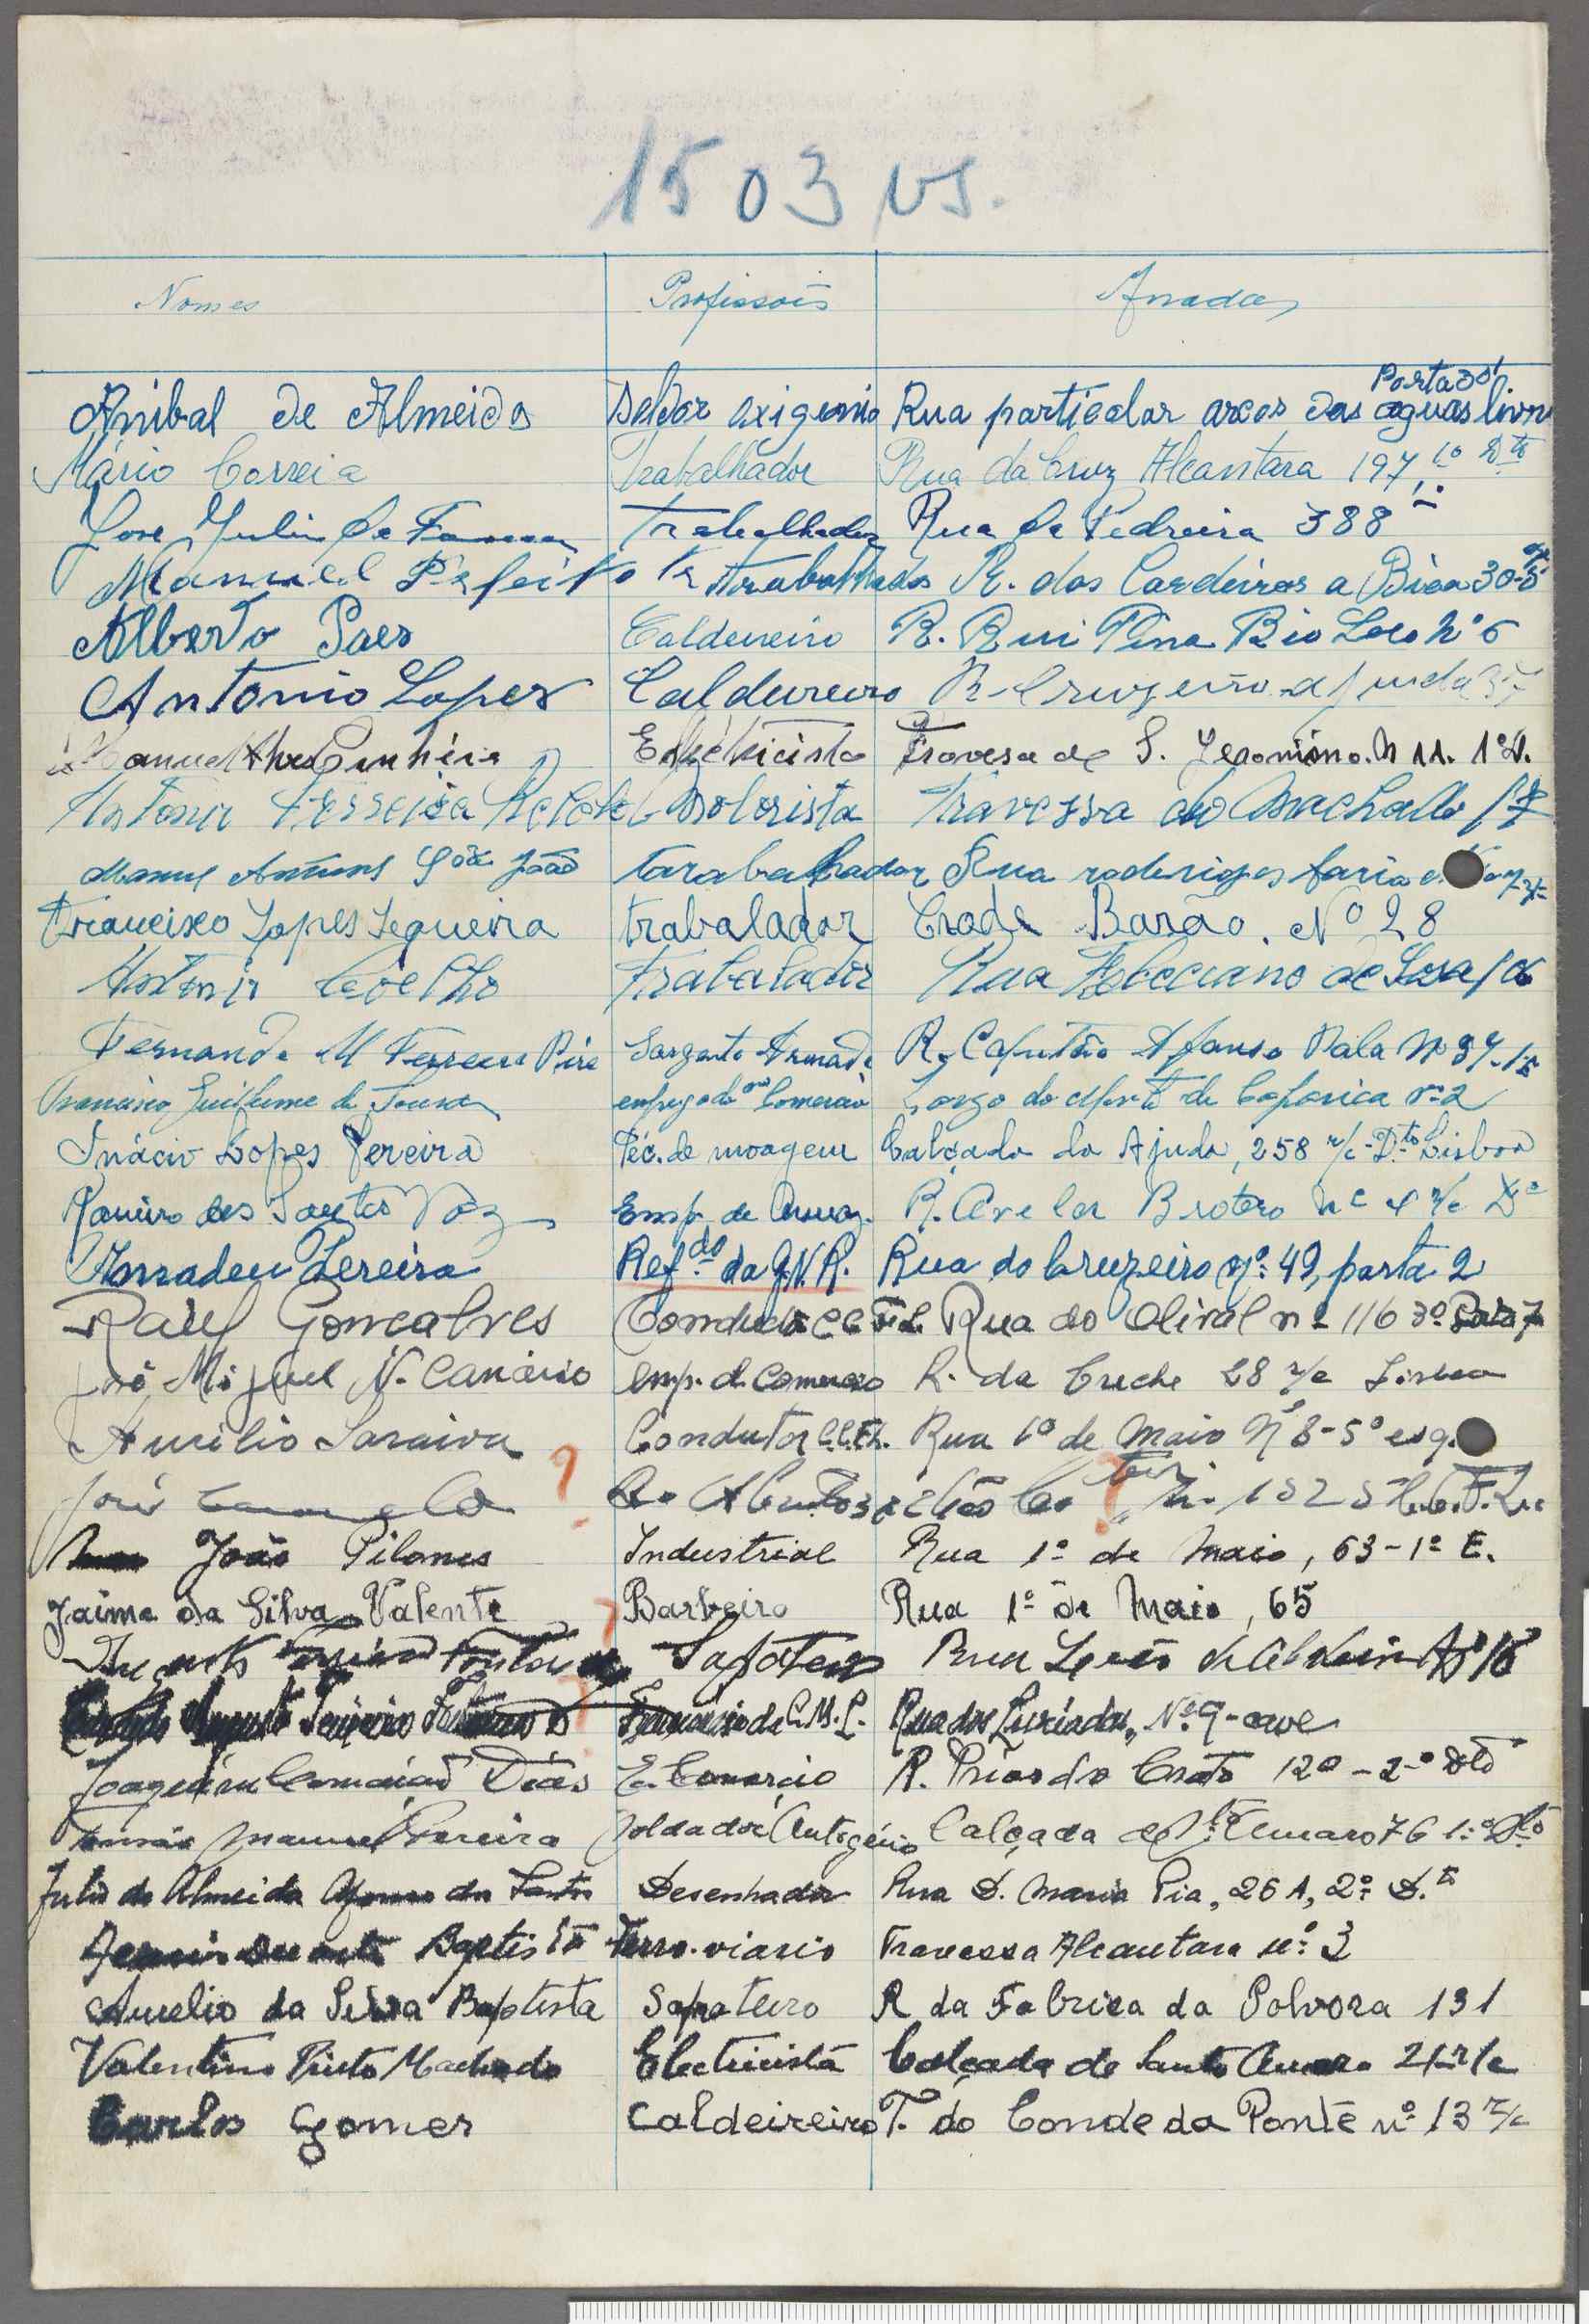 1503 vs.
Nomes Profissois Moradas
Porta 30
Anibal de Almeida Seldor oxigenio Rua particolar arcos das aguas livre
Mário Correia Trabalhador Rua da Cruz Alcantara 197, 1º Dtº
José Julio da Trabalhador Rua da Pedreira 388
Manuel Prefeito trabalhador R. dos Cordeiros a Bica 30-5
Alberto Paes Caldeireiro R. Rui Pina Bio Loco Nº 6
Antonio Lopes Caldeireiro R. Cruzeiro ajuda 37
Manuel Electricista Travesa de S. Jeronimo. N 11. 1º D.
Antonio Ferreira Motorista Travessa do Machado 17
Manuel Antunes São João tarabalhador Rua roderiges faria
Francisco Lopes Sequeira trabalador Crade Barão. Nº 28
Antonio Coelho Trabalador Rua Feleciano de Sosa
Fernando M Ferreira Pires Sargento Armada R. Capitão Afonso Pala Nº 37-1º
Francisco Guilherme de Sousa empregado no Comercio Largo do Monte de Caparica nº 2
Inácio Lopes Pereira Téc. de moagem Calçada da Ajuda, 258 r/c-Dtº Lisboa
Ramiro dos Santos Vaz Emp. de Armaz. R. Avelar Brotero nº 4 r/c Dº
Amadeu Pereira Refdo da G.N.R. Rua do Cruzeiro nº 49, porta 2
Raúl Goncalves Condutor CCFL Rua do Olival nº 116 3º Porta 7
José Miguel N. Canário emp. d. Comercio R. da Creche 28 r/c Lisboa
Aurélio Saraiva Condutor C.C.F.L. Rua 1º de Maio Nº 8-5º esq.
José ? ? C.C.F.L.
João Pilones Industrial Rua 1º de Maio, 63-1º E.
Jaime da Silva Valente Barbeiro Rua 1º de Maio, 65
Augusto ? Sapateiro Rua Leão de Nº 16
Augusto Teixeira ? Funcionario da C.M.L. Rua dos Lusiadas, Nº 9-cave
Joaquim Dias E. Comercio R. Prior do Crato 120-2º Dtº
Tomás Manuel Pereira Soldador Autogénio Calçada de Stº Amaro 76 1º Dtº
Julio de Almeida Afonso dos Santos Desenhador Rua D. Maria Pia, 26 A, 2º D.to
Duarte Baptista Ferro-viario Travessa Alcantara nº 3
Aurelio da Silva Baptista Sapateiro R da Fabrica da Polvora 131
Valentino Pinto Machado Electricista Calçada de Santo Amaro 21-r/c
Carlos Gomes Caldeireiro T. do Conde da Ponte nº 13 r/c